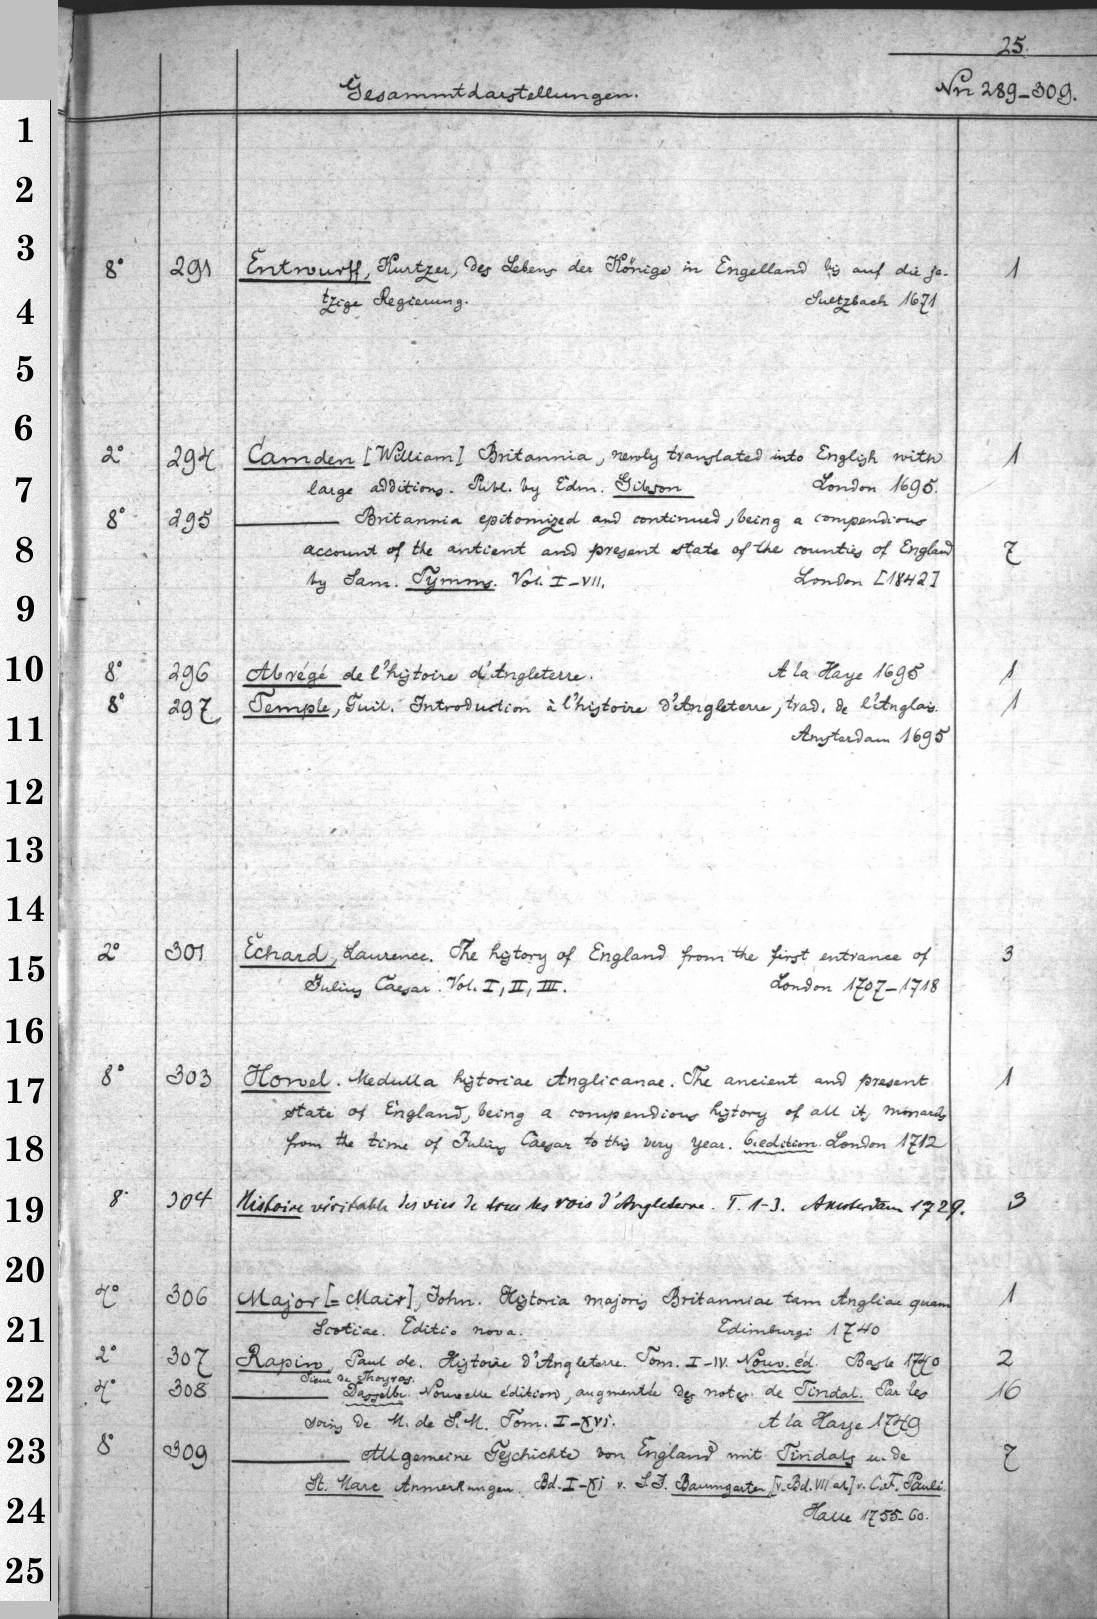 25.
Gesammtdarstellungen. Nrn 289-309.
1
2
3
8° 291 Entwurff, Kurtzer, des Lebens der Könige in Engelland bis auf die je- 1
tzige Regierung. Sultzbach 1671
4
5
6
2° 294 Camden [William] Britannia, newly translated into English with 1
large additions. Publ. by Edm. Gibson London 1695.
7
8° 295 ——— Britannia epitomized and continued, being a compendious
account of the antient and present state of the counties of England 7
8
by Sam. Tymms. Vol. I-VII. London [1842]
9
10
8° 296 Abrégé de l'histoire d'Angleterre. A la Haye 1695 1
8° 297 Temple, Guil. Introduction à l'histoire d'Angleterre, trad. de l'Anglais. 1
11
Amsterdam 1695
12
13
14
2° 301 Echard, Laurence. The history of England from the first entrance of 3
15
Julius Caesar. Vol. I, II, III. London 1707-1718
16
8° 303 Howel. Medulla historiae Anglicanae. The ancient and present 1
17
state of England, being a compendious history of all its monarchs
from the time of Julius Caesar to this very year. 6.edition. London 1712
18
8° 304 Histoire véritable des vies de tous les rois d'Angleterre. T. 1-3. Amsterdam 1729. 3
19
20
4° 306 Major [= Mair], John. Historia majoris Britanniae tam Angliae quam 1
21
Scotiae. Editio nova. Edimburgi 1740
2° 307 Rapin, Paul de. Histoire d'Angleterre. Tom. I-IV. Nouv. éd. Basle 1740 2
Sieur de Thoyras.
22
4° 308 ——— Dasselbe. Nouvelle édition, augmentée des notes de Tindal. Par les 16
soins de M. de S.M. Tom. I-XVI. A la Haye 1749
23
8° 309 ——— Allgemeine Geschichte von England mit Tindals u. de 7
St. Marc Anmerkungen. Bd. I-XI v. S.J. Baumgarten [v. Bd. VII ab] v. C.F. Pauli.
24
Halle 1755-60.
25